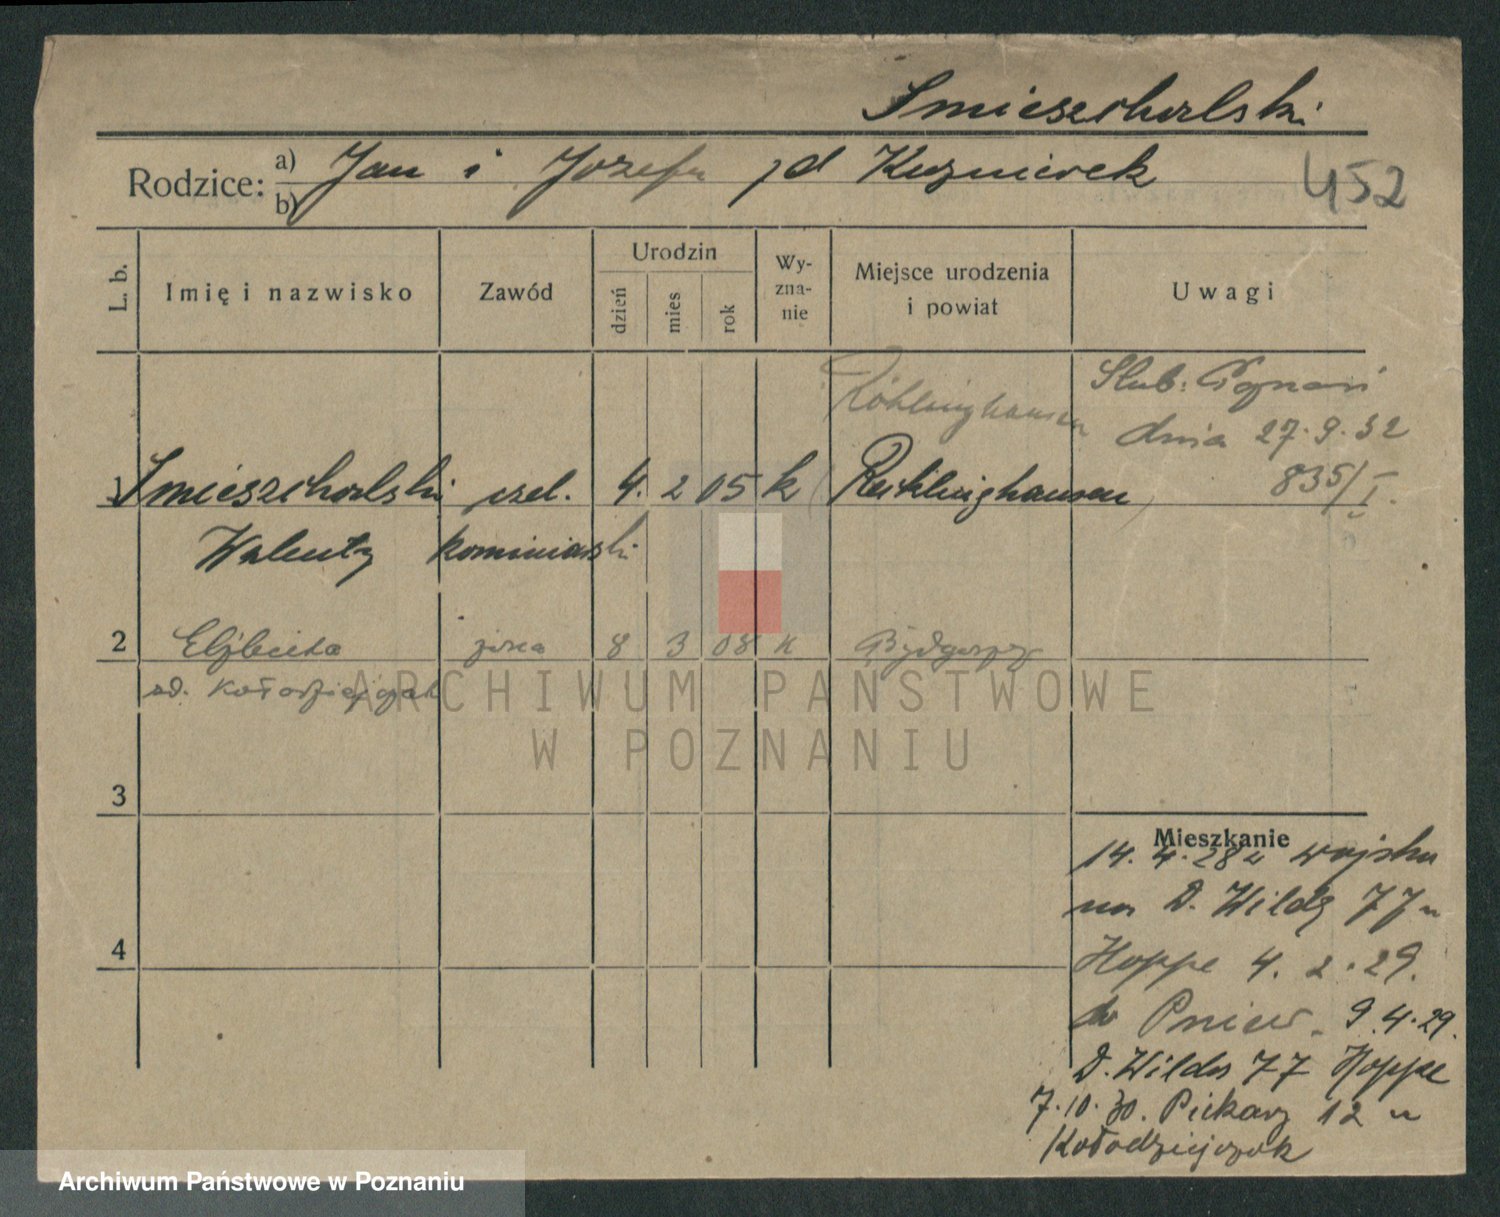 Smieszchalski
Rodzice: a) Jan i Jozefa zd Kuzmierek
b)
452
L. b.
Imię i nazwisko
Zawód
Urodzin
dzień
mies
rok
Wy-
zna-
nie
Miejsce urodzenia
i powiat
Uwagi
Röhlinghausen
Slub: Poznań
dnia 27.9.32
835/I.
1 Smieszchalski czel. 4. 2 05 k (Recklinghausen)
Walenty kominiarski
2 Elżbieta żona 8 3 08 k Bydgoszcz
zd. Kołodziejczak
ARCHIWUM PAŃSTWOWE
W POZNANIU
3
4
Mieszkanie
14.4.28 z wojska
na D. Wildę 77 u
Hoppe 4.2.29.
do Pniew. 9.4.29.
D. Wilda 77 Hoppe
7.10.30. Piekary 12 u
Kołodziejczak
Archiwum Państwowe w Poznaniu